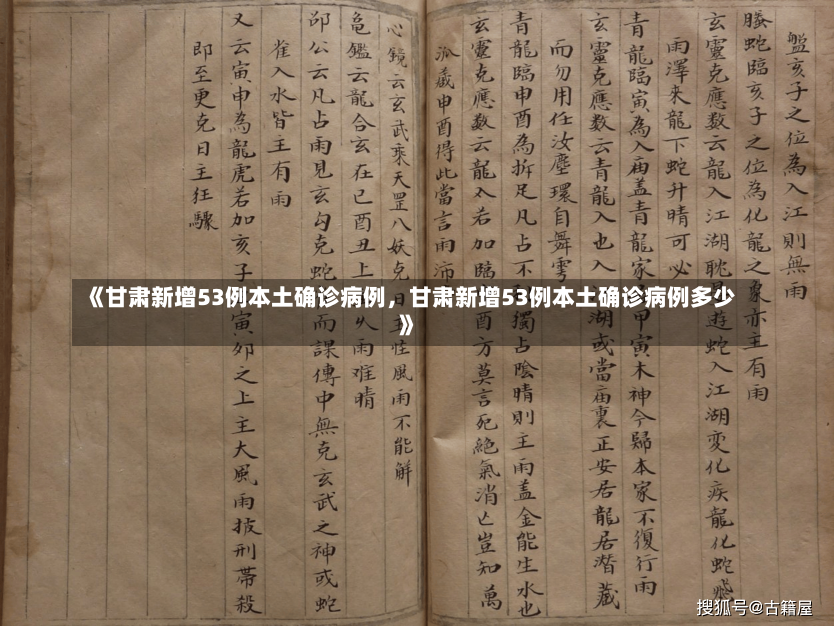 盤亥子之位為入江則無雨
螣蛇臨亥子之位為化龍之象亦主有雨
玄靈克應數云龍入江湖耽
遊蛇入江湖変化疾龍化蛇
雨澤来龍下蛇升晴可必
青龍臨寅為入庙盖青龍家
甲寅木神今歸本家不復行雨
玄靈克應數云青龍入也入
湖或當庙裏正安居龍居潛藏
而勿用任汝塵環自舞雩
青龍臨申酉為拆足凡占不
獨占陰晴則主雨盖金能生水也
玄靈克應數云龍入若加臨
酉方莫言死絶氣消亡豈知萬
派歲申酉得此當言雨沛
心鏡云玄武乘天罡八妖克日
性風雨不能解
亀鑑云龍合玄在已酉丑上
久雨难晴
邵公云凡占雨見玄勾克蛇
而課傳中無克玄武之神或蛇
雀入水皆主有雨
又云寅申為龍虎若加亥子
寅夘之上主大風雨披刑帶殺
即至更克日主狂驟
《甘肃新增53例本土确诊病例，甘肃新增53例本土确诊病例多少
》
搜狐号@古籍屋